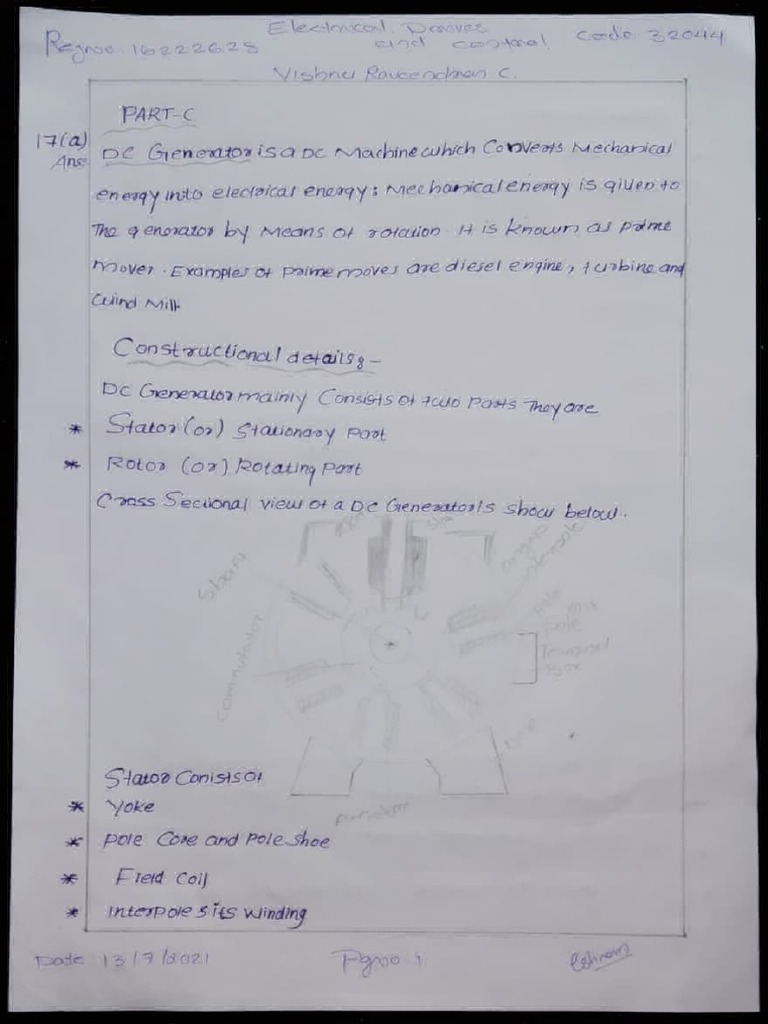 Electrical Drives
Regno: 16222628 and control Code: 32044
Vishnu Raveendran C.
PART-C
17(a)
Ans: DC Generator is a DC Machine which Converts Mechanical
energy into electrical energy; Mechanical energy is given to
The generator by Means of rotation. It is known as prime
mover. Examples of prime moves are diesel engine, turbine and
Wind Mill.
Constructional details:-
DC Generator mainly Consists of two Parts They are
* Stator (or) Stationary Part
* Rotor (or) Rotating Part
Cross Sectional view of a DC Generator is show below.
Commutator
pole
Terminal
Box
Stator Conists of
* Yoke
* Pole Core and Pole Shoe
* Field Coil
* Interpole & its Winding
Date: 13/7/2021 Pgno: 1